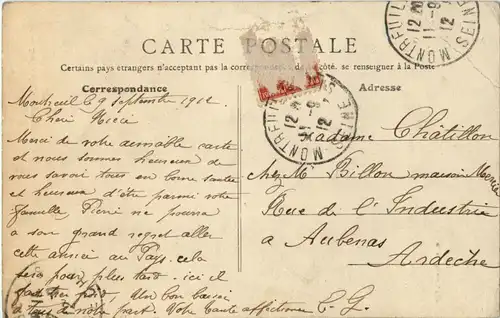 CARTE POSTALE
Certains pays étrangers n'acceptant pas la correspondance de ce côté, se renseigner à la Poste
Correspondance
Adresse
Montreuil le 9 Septembre 1912
Cheri Niece
Merci de votre aimable carte
et nous sommes heureux de
vous savoir tous en bonne santée
et heureux d'être parmi votre
famille Pierre ne pourra
a son grand regret aller
cette année au Pays. cela
sera pour plus tard. ici il
fait très froid, Un bon baiser
a tous de notre part. Votre tante affectionnée E. G.
Madame Chatillon
chez M Billon maison
Rue de l'Industrie
a Aubenas
Ardeche
MONTREUIL
SEINE
12
11 - 9
12
MONTREUIL
SEINE
12
11 9
12